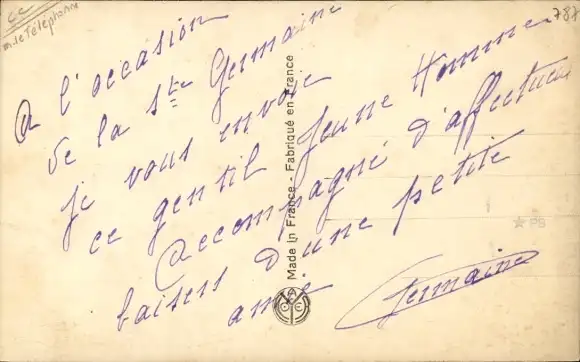 m. le Téléphone
787
A l'occasion
de la Ste Germaine
je vous envoie
ce gentil Jeune Homme
Accompagné d'affectueux
baisers d'une petite
amie
Germaine
Made in France - Fabriqué en France
PB